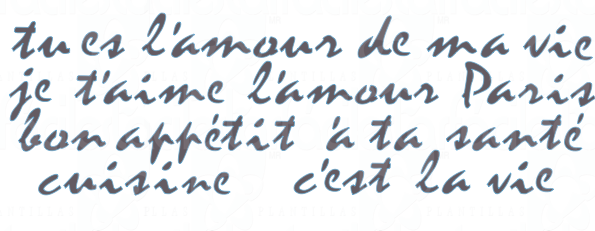 tu es l'amour de ma vie
je t'aime l'amour Paris
bon appétit à ta santé
cuisine c'est la vie